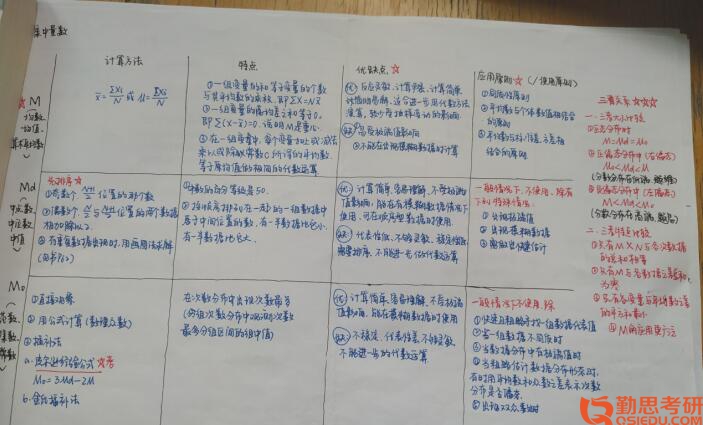 集中量数
计算方法
特点
优缺点☆
应用原则☆(/使用原则)
三者关系☆☆☆
☆M
均数
均值
算术平均数
x̄=ΣXi/N 或 μ=ΣXi/N
①一组变量的和等于变量的个数
与其平均数的乘积,即ΣX=Nx̄
②一组变量的离均差之和等于0,
即Σ(x-x̄)=0,说明M是重心
③在一组变量中,每个变量加上或减法
优:反应灵敏、计算严密、计算简单
简明易解、适合进一步用代数方法
演算,较少受抽样变动的影响
缺:①易受极端值影响
②不能在出现模糊数据时计算
①同质性原则
②平均数与个体数值相结合
的原则
③平均数与标准差、方差相
结合的原则
一、三者大小比较
①正态分布时
M=Md=Mo
②正偏态分布中(右偏态)
Mo<Md<M
③负偏态分布中(左偏态)
M<Md<Mo
二、三者特征比较
Md
中位数
中数
中值
先排序☆
①奇数个:N+1/2 位置的那个数
相加除以2
③有重复数据出现时,用画图法求解
①中数的百分等级是50.
②按顺序排列在一起的一组数据中
居于中间位置的数,有一半数据比它小,
有一半数据比它大.
优:计算简单、容易理解、不受极端
值影响,能在有模糊数据情况下
使用,可在顺序型数据时使用
缺:代表性低、不够灵敏、稳定性低
需要排序、不能进一步做代数运算
一般情况下,不使用,除有
下列特殊情况:
①出现极端值
②出现模糊数据
③需要快速估计
Mo
众数
①直接观察
②用公式计算(数理众数)
③插补法
a.皮尔逊经验公式☆考
Mo=3Md-2M
b.金氏插补法
在次数分布中出现次数最多
最多分组区间的组中值)
优:计算简单、容易理解、不受极端
值影响,能在模糊数据时使用
缺:不稳定、代表性差、不够灵敏、
不能进一步的代数运算
一般情况下不使用,除
①快速且粗略寻找一组数据代表值
②当一组数据不同质时
③当数据分布中有极端值时
④当粗略估计数据分布形态时,
有时用平均数和众数之差表示次数
分布是否偏态.
⑤出现双众数时
勤思考研
QSIEDU.COM